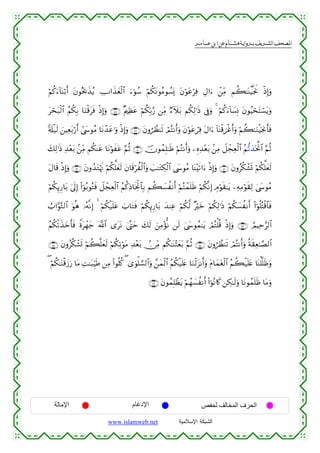 المصحف الشريف برواية هشام عن ابن عامر
وَإِذْ نَجَّيْنَٰكُم مِّنْ ءَالِ فِرْعَوْنَ يَسُومُونَكُمْ سُوٓءَ ٱلْعَذَابِ يُذَبِّحُونَ أَبْنَآءَكُمْ
وَيَسْتَحْيُونَ نِسَآءَكُمْ ۚ وَفِى ذَٰلِكُم بَلَآءٌ مِّن رَّبِّكُمْ عَظِيمٌ وَإِذْ فَرَقْنَا بِكُمُ ٱلْبَحْرَ
فَأَنجَيْنَٰكُمْ وَأَغْرَقْنَآ ءَالَ فِرْعَوْنَ وَأَنتُمْ تَنظُرُونَ وَإِذْ وَٰعَدْنَا مُوسَىٰٓ أَرْبَعِينَ لَيْلَةً
ثُمَّ ٱتَّخَذتُّمُ ٱلْعِجْلَ مِنۢ بَعْدِهِۦ وَأَنتُمْ ظَٰلِمُونَ ثُمَّ عَفَوْنَا عَنكُم مِّنۢ بَعْدِ ذَٰلِكَ
لَعَلَّكُمْ تَشْكُرُونَ وَإِذْ ءَاتَيْنَا مُوسَى ٱلْكِتَٰبَ وَٱلْفُرْقَانَ لَعَلَّكُمْ تَهْتَدُونَ وَإِذْ قَالَ
مُوسَىٰ لِقَوْمِهِۦ يَٰقَوْمِ إِنَّكُمْ ظَلَمْتُمْ أَنفُسَكُم بِٱتِّخَاذِكُمُ ٱلْعِجْلَ فَتُوبُوٓا۟ إِلَىٰ بَارِئِكُمْ
فَٱقْتُلُوٓا۟ أَنفُسَكُمْ ذَٰلِكُمْ خَيْرٌ لَّكُمْ عِندَ بَارِئِكُمْ فَتَابَ عَلَيْكُمْ ۚ إِنَّهُۥ هُوَ ٱلتَّوَّابُ
ٱلرَّحِيمُ وَإِذْ قُلْتُمْ يَٰمُوسَىٰ لَن نُّؤْمِنَ لَكَ حَتَّىٰ نَرَى ٱللَّهَ جَهْرَةً فَأَخَذَتْكُمُ
ٱلصَّٰعِقَةُ وَأَنتُمْ تَنظُرُونَ ثُمَّ بَعَثْنَٰكُم مِّنۢ بَعْدِ مَوْتِكُمْ لَعَلَّكُمْ تَشْكُرُونَ
وَظَلَّلْنَا عَلَيْكُمُ ٱلْغَمَامَ وَأَنزَلْنَا عَلَيْكُمُ ٱلْمَنَّ وَٱلسَّلْوَىٰ ۖ كُلُوا۟ مِن طَيِّبَٰتِ مَا رَزَقْنَٰكُمْ ۖ
وَمَا ظَلَمُونَا وَلَٰكِن كَانُوٓا۟ أَنفُسَهُمْ يَظْلِمُونَ
الحرف المخالف لحفص الإدغام الإمالة
الشبكة الإسلامية www.islamweb.net